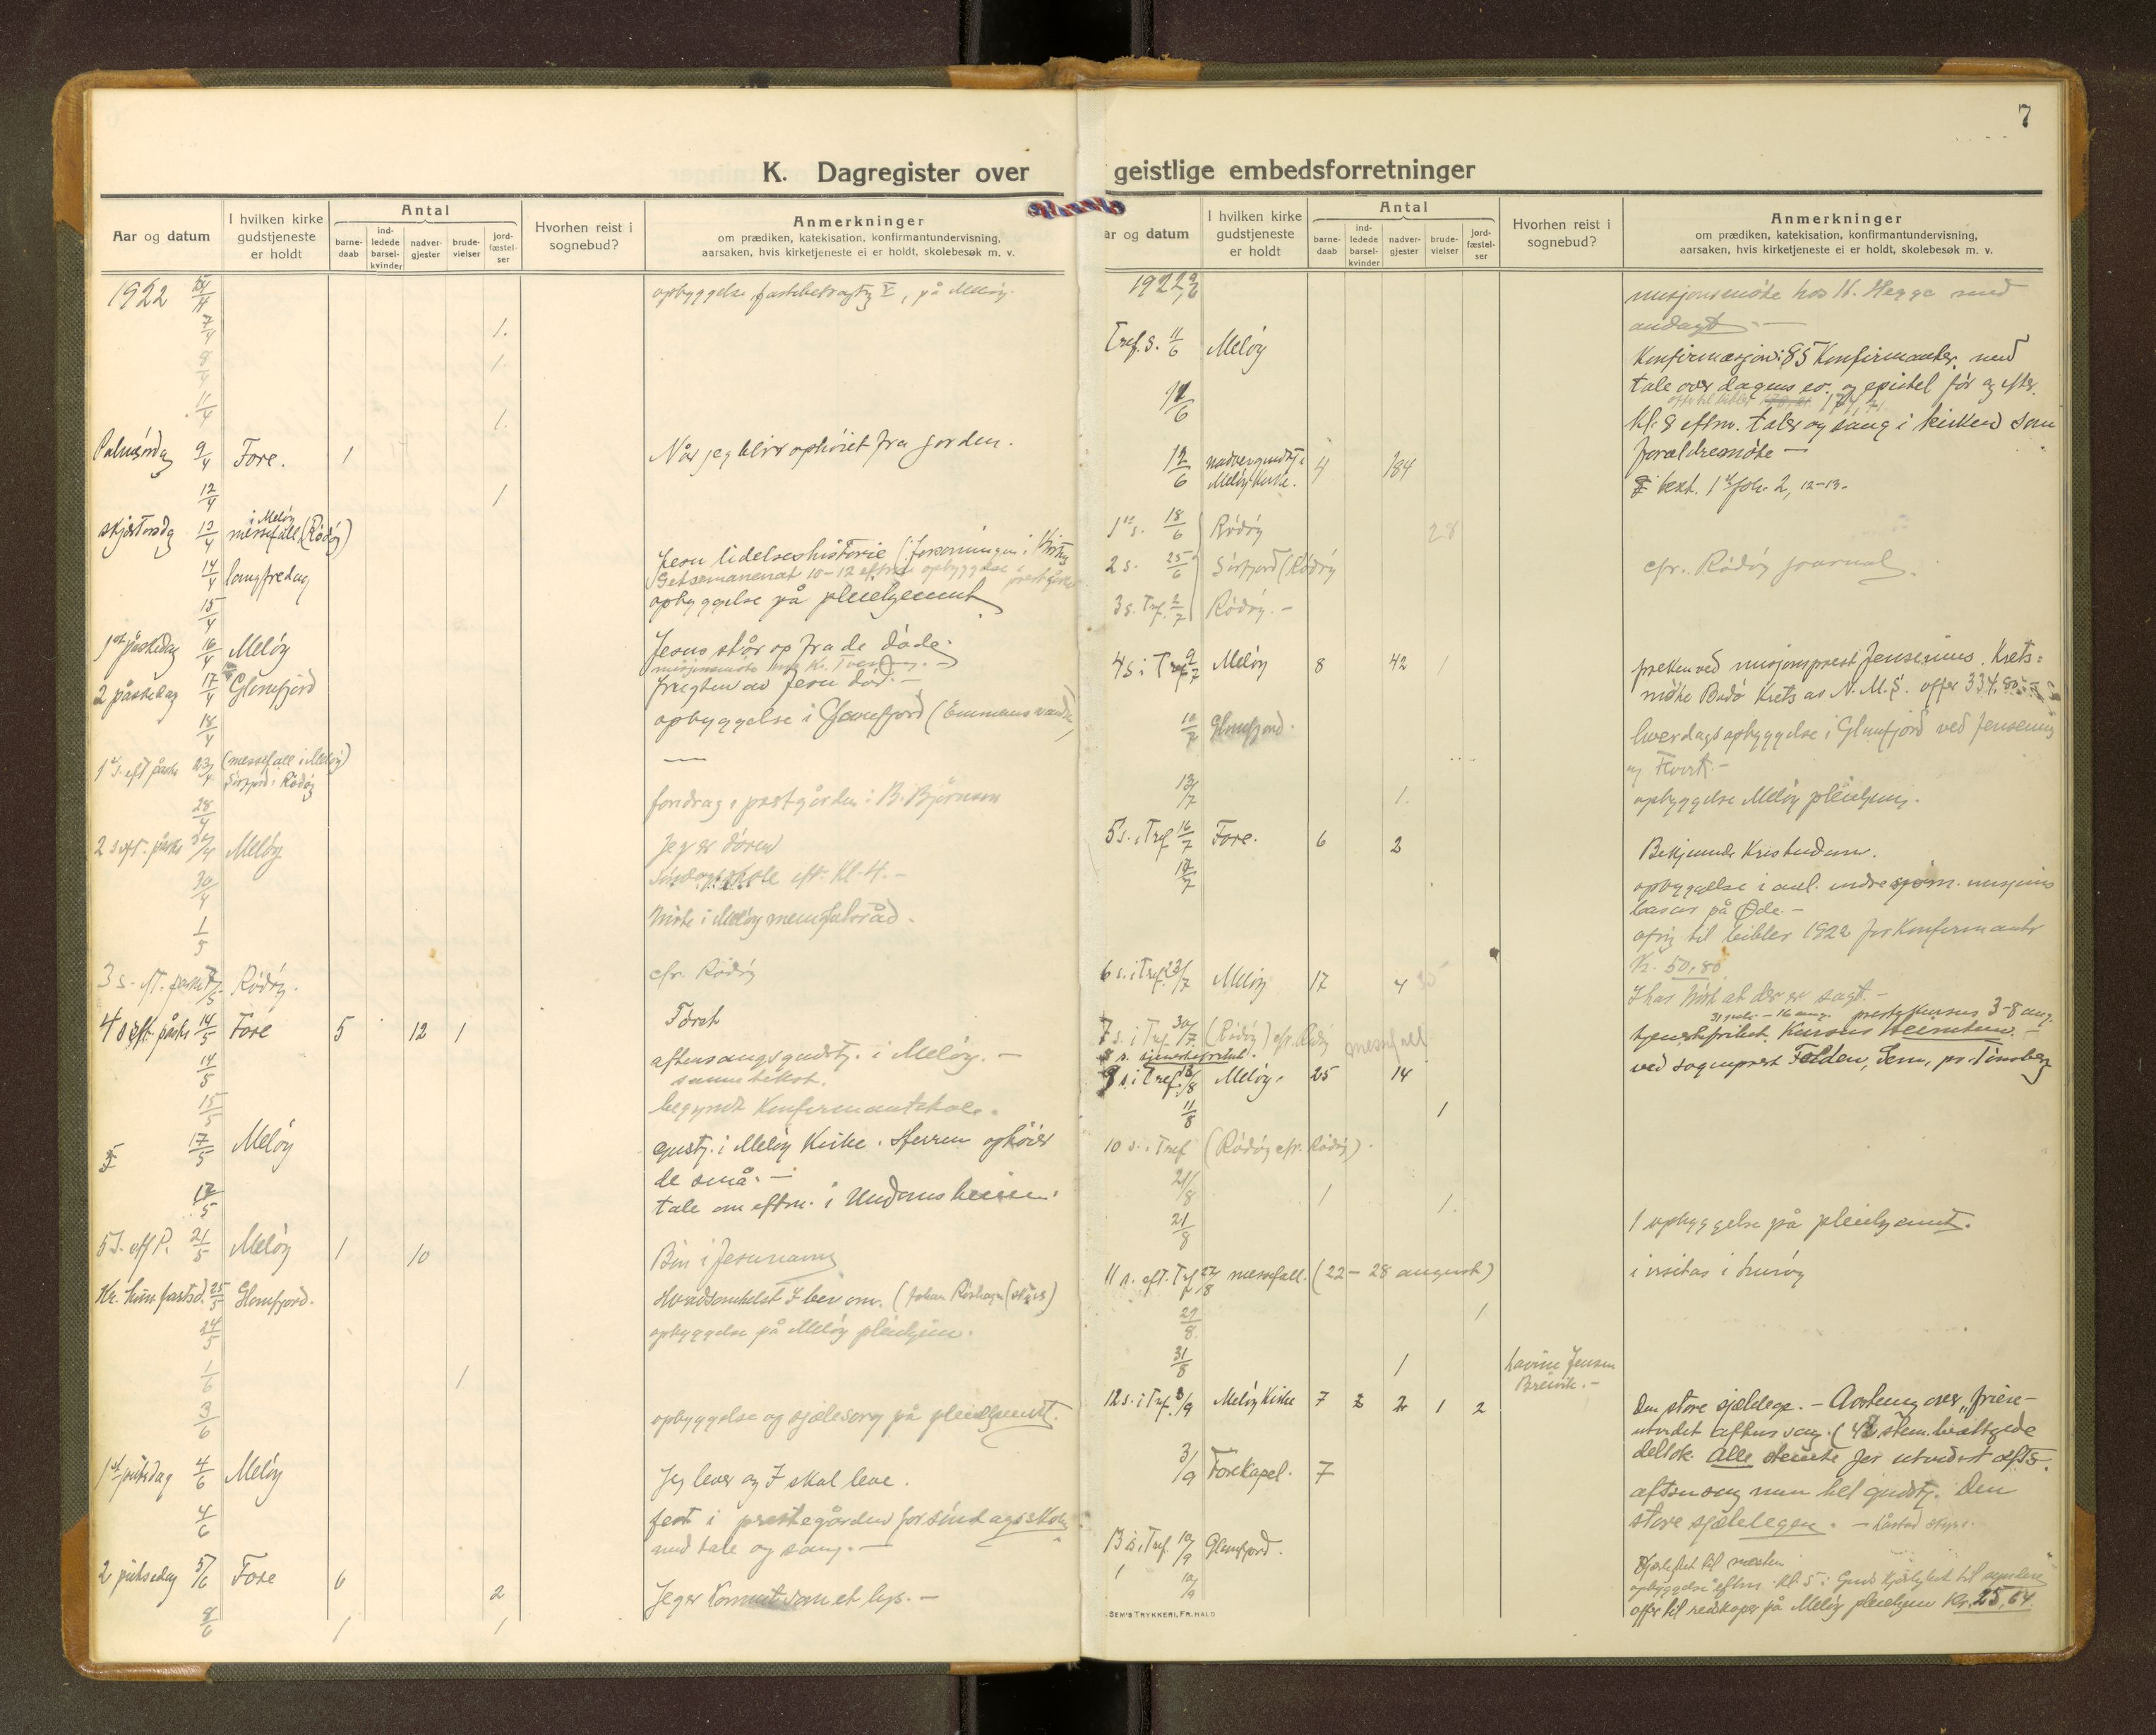 7
K. Dagregister over
Aar og datum
I hvilken kirke gudstjeneste er holdt
Antal
barne-daab
ind-ledede barsel-kvinder
nadver-gjester
brude-vielser
jord-fæstel-ser
Hvorhen reist i sognebud?
Anmerkninger
om prædiken, katekisation, konfirmantundervisning,
aarsaken, hvis kirketjeneste ei er holdt, skolebesøk m. v.
1922 opbyggelse, fastebetragtg V, på Meløy.
7/4 1.
8/4 1.
11/4 1.
Palmesøndag 9/4 Fore. 1 Når jeg blir ophøiet fra jorden.
12/4 1
i Meløy
skjærtorsdag 13/4 messefall (Rødøy)
14/4 langfredag Jesu lidelseshistorie
Getsemanenat 10-12 eftm. opbyggelse i
15/4 opbyggelse på pleiehjemmet
1ste påskedag 16/4 Meløy Jesus står op fra de døde.
2 påskedag 17/4 Glomfjord frugten av Jesu død. —
18/4 opbyggelse i Glomfjord (Emmaus
1 s. eft påske 23/4 (messefall i Meløy) —
Sørfjord i Rødøy
28/4 foredrag i prestgården: B. Bjørnson
2 s eft. påske Meløy Jeg er døren
30/4 Søndagsskole eft. Kl. 4. —
1/5 Møte i Meløy menighetsråd.
3 s. eft. påske 7/5 Rødøy. cfr. Rødøy
4 s eft. påske 14/5 Fore 5 12 1 Tørst
14/5 aftensangsgudstj. i Meløy. —
samme tekst.
15/5 begyndt Konfirmantskole.
17/5 Meløy gustj. i Meløy Kirke. Herren ophøier
de små. —
17/5 tale om eftm. i Ungdomsheimen.
5 S. eft P. 21/5 Meløy 1 10 Bøn i Jesu navn
Kr. himmelfartsd. 25/5 Glomfjord. Hvadsomhelst I ber om.
24/5 opbyggelse på Meløy pleiehjem.
1/6 1
3/6 opbyggelse og sjælesorg på pleiehjemmet.
1ste pinsedag 4/6 Meløy Jeg lever og I skal leve.
4/6 fest i prestegården for søndagsskolen
med tale og sang. —
2 pinsedag 5/6 Fore 6 2 Jeg er kommet som et lys. —
8/6 1 1
geistlige embedsforretninger
ar og datum
I hvilken kirke gudstjeneste er holdt
Antal
barne-daab
ind-ledede barsel-kvinder
nadver-gjester
brude-vielser
jord-fæstel-ser
Hvorhen reist i sognebud?
Anmerkninger
om prædiken, katekisation, konfirmantundervisning,
aarsaken, hvis kirketjeneste ei er holdt, skolebesøk m. v.
1922 misjonsmøte hos H. Hegge med
andagt —
Tref. s. 11/6 Meløy Konfirmasjon: 85 Konfirmanter, med
tale over dagens ev. og epistel før og efter.
11/6 Kl. 8 eftm. taler og sang i kirken som
forældremøte —
12/6 nadvergudstj i Meløy Kirke. 4 184 text. 1 Joh. 2, 12-13.
1ste s. 18/6 Rødøy 28
2 s. 25/6 Sørfjord (Rødøy cfr. Rødøy journal.
3 s. Tref. 2/7 Rødøy. —
4 s. i Tref 9/7 Meløy 8 42 1 preken ved misjonsprest Jensenius. Krets=
møte Bodø Krets av N.M.S. offer 334,80
10/7 Glomfjord. hverdagsopbyggelse i Glomfjord ved Jensenius
og
13/7 1. opbyggelse Meløy pleiehjem.
5 s. i Tref 16/7 Fore. 6 2 Bekjennde Kristendom.
opbyggelse i anl. indresjøm. misjons
basar på Øde. —
ofrig til bibler 1922 for Konfirmanter
Kr. 50,80
6 s. i Tref. 23/7 Meløy 17 4 I har hørt at der er sagt. —
31 juli — 16 aug. prestekursus 3-8 aug.
7 s. i Tref. 30/7 (Rødøy) cfr. Rødøy messefall tjenestefrihet. Kursus
8 s. tjenestefrihet. ved sogneprest Felden, Sem, pr. Tønsberg
9 s. i Tref. 13/8 Meløy. 25 14
11/8 1
10 s. i Tref (Rødøy cfr. Rødøy).
21/8 1 1.
21/8 1 opbyggelse på pleiehjemmet.
11 s. eft. Tref 27/8 messefall. (22 — 28 august) i visitas i Lurøy
29/8. 1
31/8 1 Lavine Jensen
Breivik. —
12 s. i Tref. 3/9 Meløy Kirke 7 2 2 1 2 Den store sjælelæge. — Avstemning over
utvidet aftensang. (48 stem.berettigede
deltok. Alle stemte for utvidet afts.
3/9 Forekapel. 7 aftensang men hel gudstj. Den
store sjælelegen.
13 s. i Tref. 10/9 Glomfjord.
10/9 opbyggelse eftm. Kl. 5: Guds kjærlighet til syndere
offer til redskaper på Meløy pleiehjem Kr. 25,64.
SEM'S TRYKKERI, FR.HALD